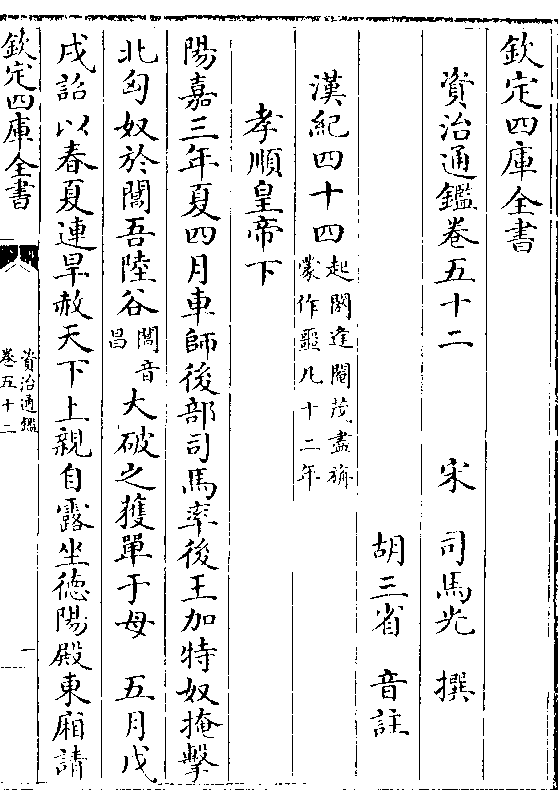 欽定四庫全書
資治通鑑卷五十二
宋 司馬光 撰
胡三省 音註
漢紀四十四起閼逢閹茂盡旃蒙作噩凡十二年
孝順皇帝下
陽嘉三年夏四月車師後部司馬率後王加特奴掩擊
北匈奴於閶吾陸谷閶音昌大破之獲單于母 五月戊
戌詔以春夏連旱赦天下上親自露坐德陽殿東廂請
欽定四庫全書
資治通鑑
卷五十二
一